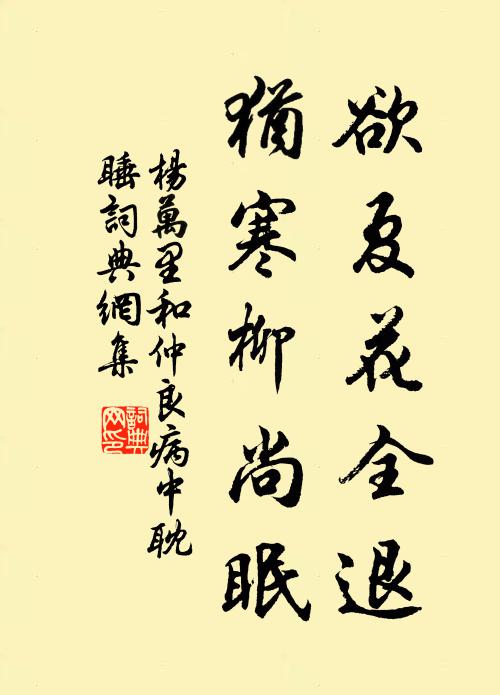 欲夏花全退
猶寒柳尚眠
楊萬里和仲良病中耽
睡詞典網集
詞典
网印